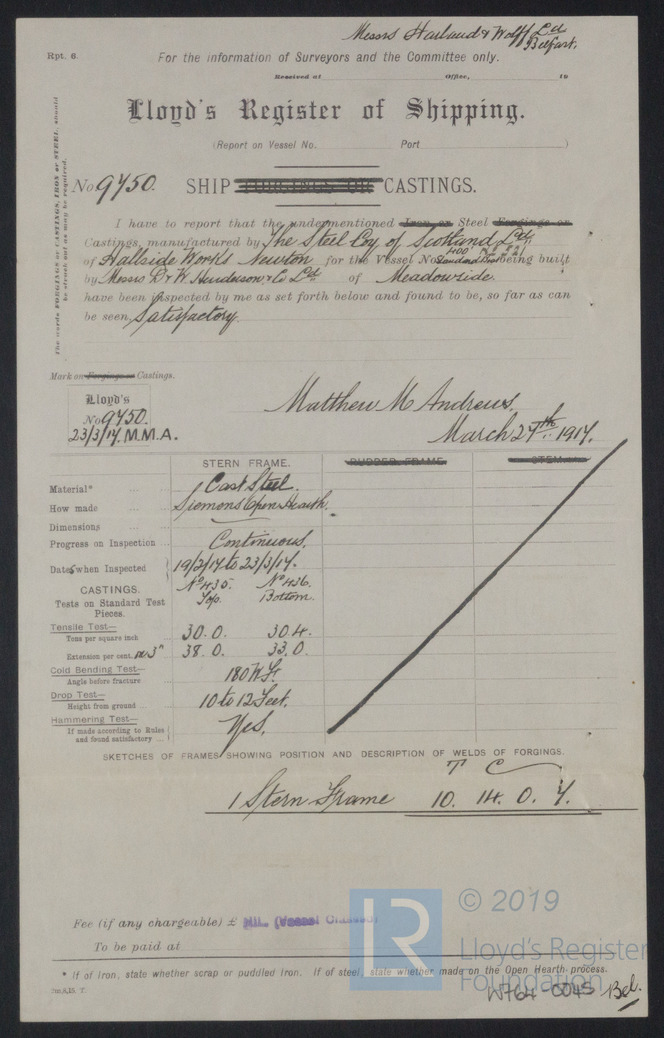 Messrs Harland & Wolff Ld
Belfast.
Rpt. 6.
For the information of Surveyors and the Committee only.
Received at Office, 19
Lloyd's Register of Shipping.
(Report on Vessel No. Port )
The words FORGINGS or CASTINGS, IRON or STEEL, should
be struck out as may be required.
No 9750. SHIP FORGINGS OR CASTINGS.
I have to report that the undermentioned Iron or Steel Forgings or
Castings, manufactured by The Steel Coy of Scotland Ld
of Hallside Works Newton for the Vessel No 400' Standard being built
by Messrs D & W. Henderson & Co Ld of Meadowside
have been inspected by me as set forth below and found to be, so far as can
be seen, Satisfactory.
Mark on Forgings or Castings.
Lloyd's
No 9750.
23/3/17. M.M.A.
Matthew M Andrews.
March 27th 1917.
STERN FRAME. RUDDER FRAME STEM
Material* Cast Steel.
How made Siemens Open Hearth.
Dimensions
Progress on Inspection Continuous.
Dates when Inspected 19/2/17 to 23/3/17.
CASTINGS. No 435. No 436.
Tests on Standard Test Top. Bottom.
Pieces.
Tensile Test—
Tons per square inch 30.0. 30.4.
Extension per cent. on 3" 38.0. 33.0
Cold Bending Test—
Angle before fracture 180
Drop Test—
Height from ground 10 to 12 Feet.
Hammering Test—
If made according to Rules
and found satisfactory Yes.
SKETCHES OF FRAMES SHOWING POSITION AND DESCRIPTION OF WELDS OF FORGINGS.
T C
1 Stern Frame 10. 14. 0. 7.
Fee (if any chargeable) £ NIL. (Vessel Classed)
To be paid at
* If of Iron, state whether scrap or puddled iron. If of steel, state whether made on the Open Hearth process.
LR © 2019
Lloyd's Register
Foundation
W764-0045 Bel.